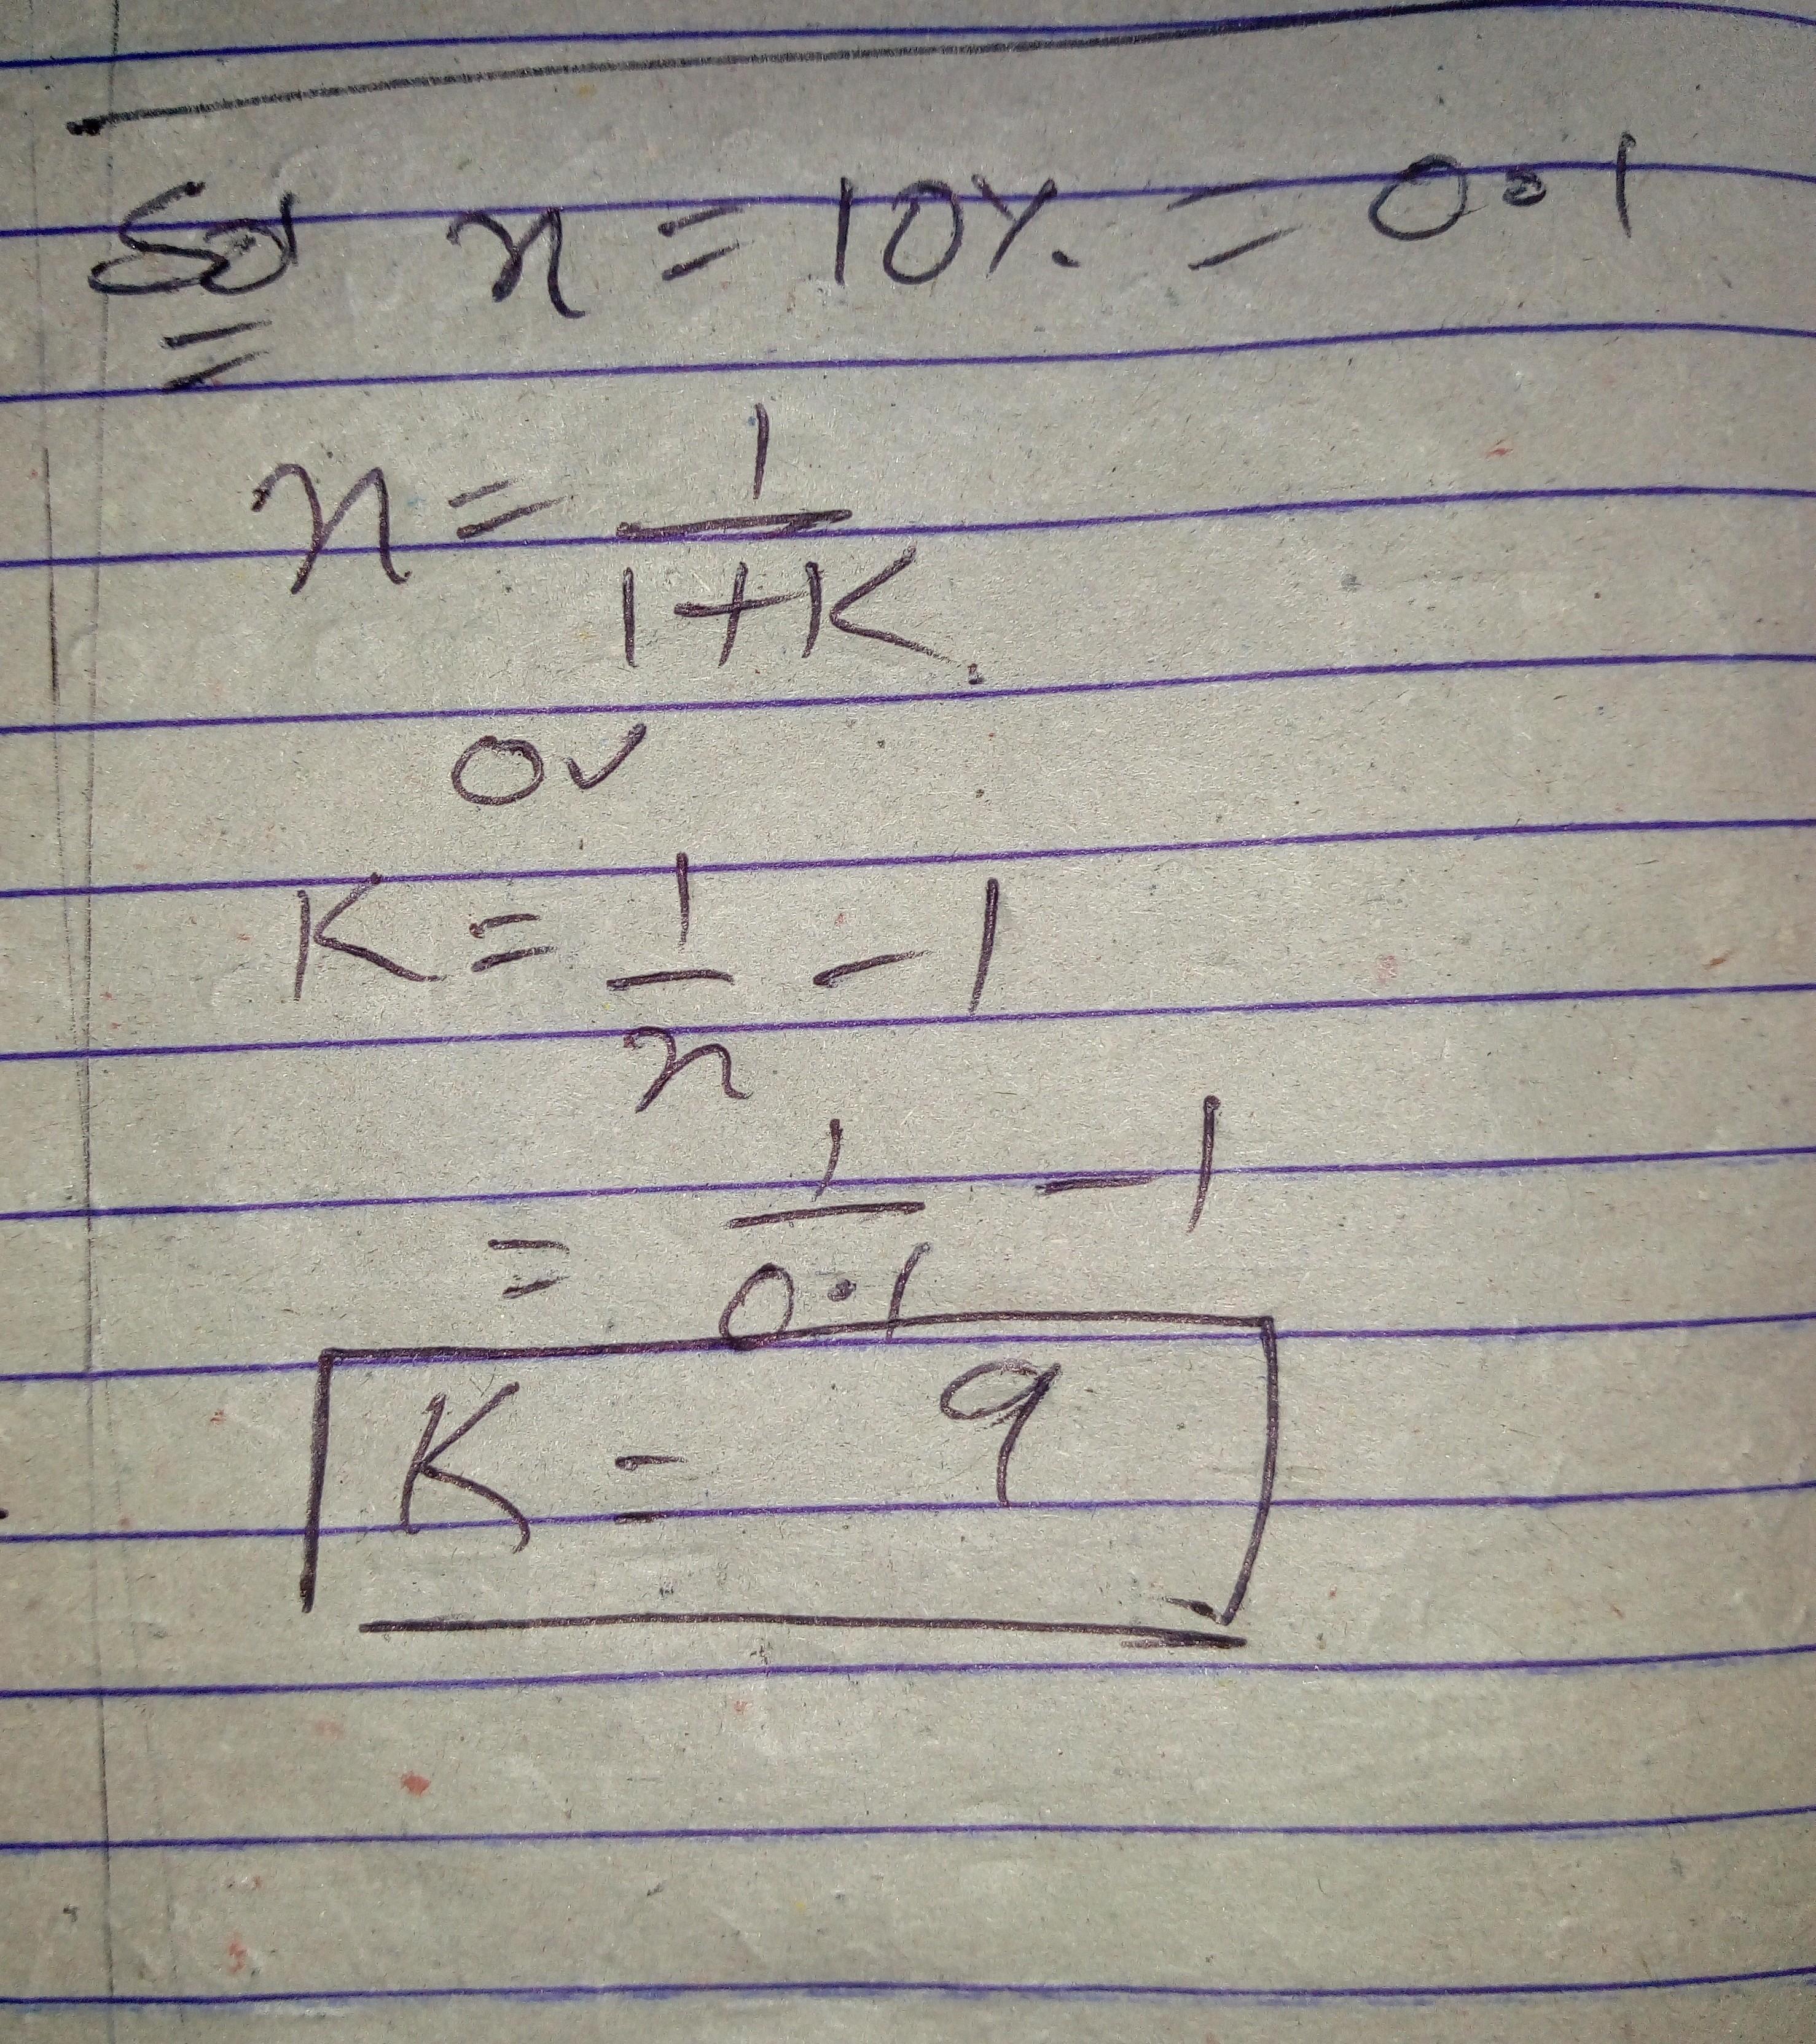 Sol n = 10% = 0.1
n = 1/(1+K)
or
K = 1/n - 1
= 1/0.1 - 1
K = 9